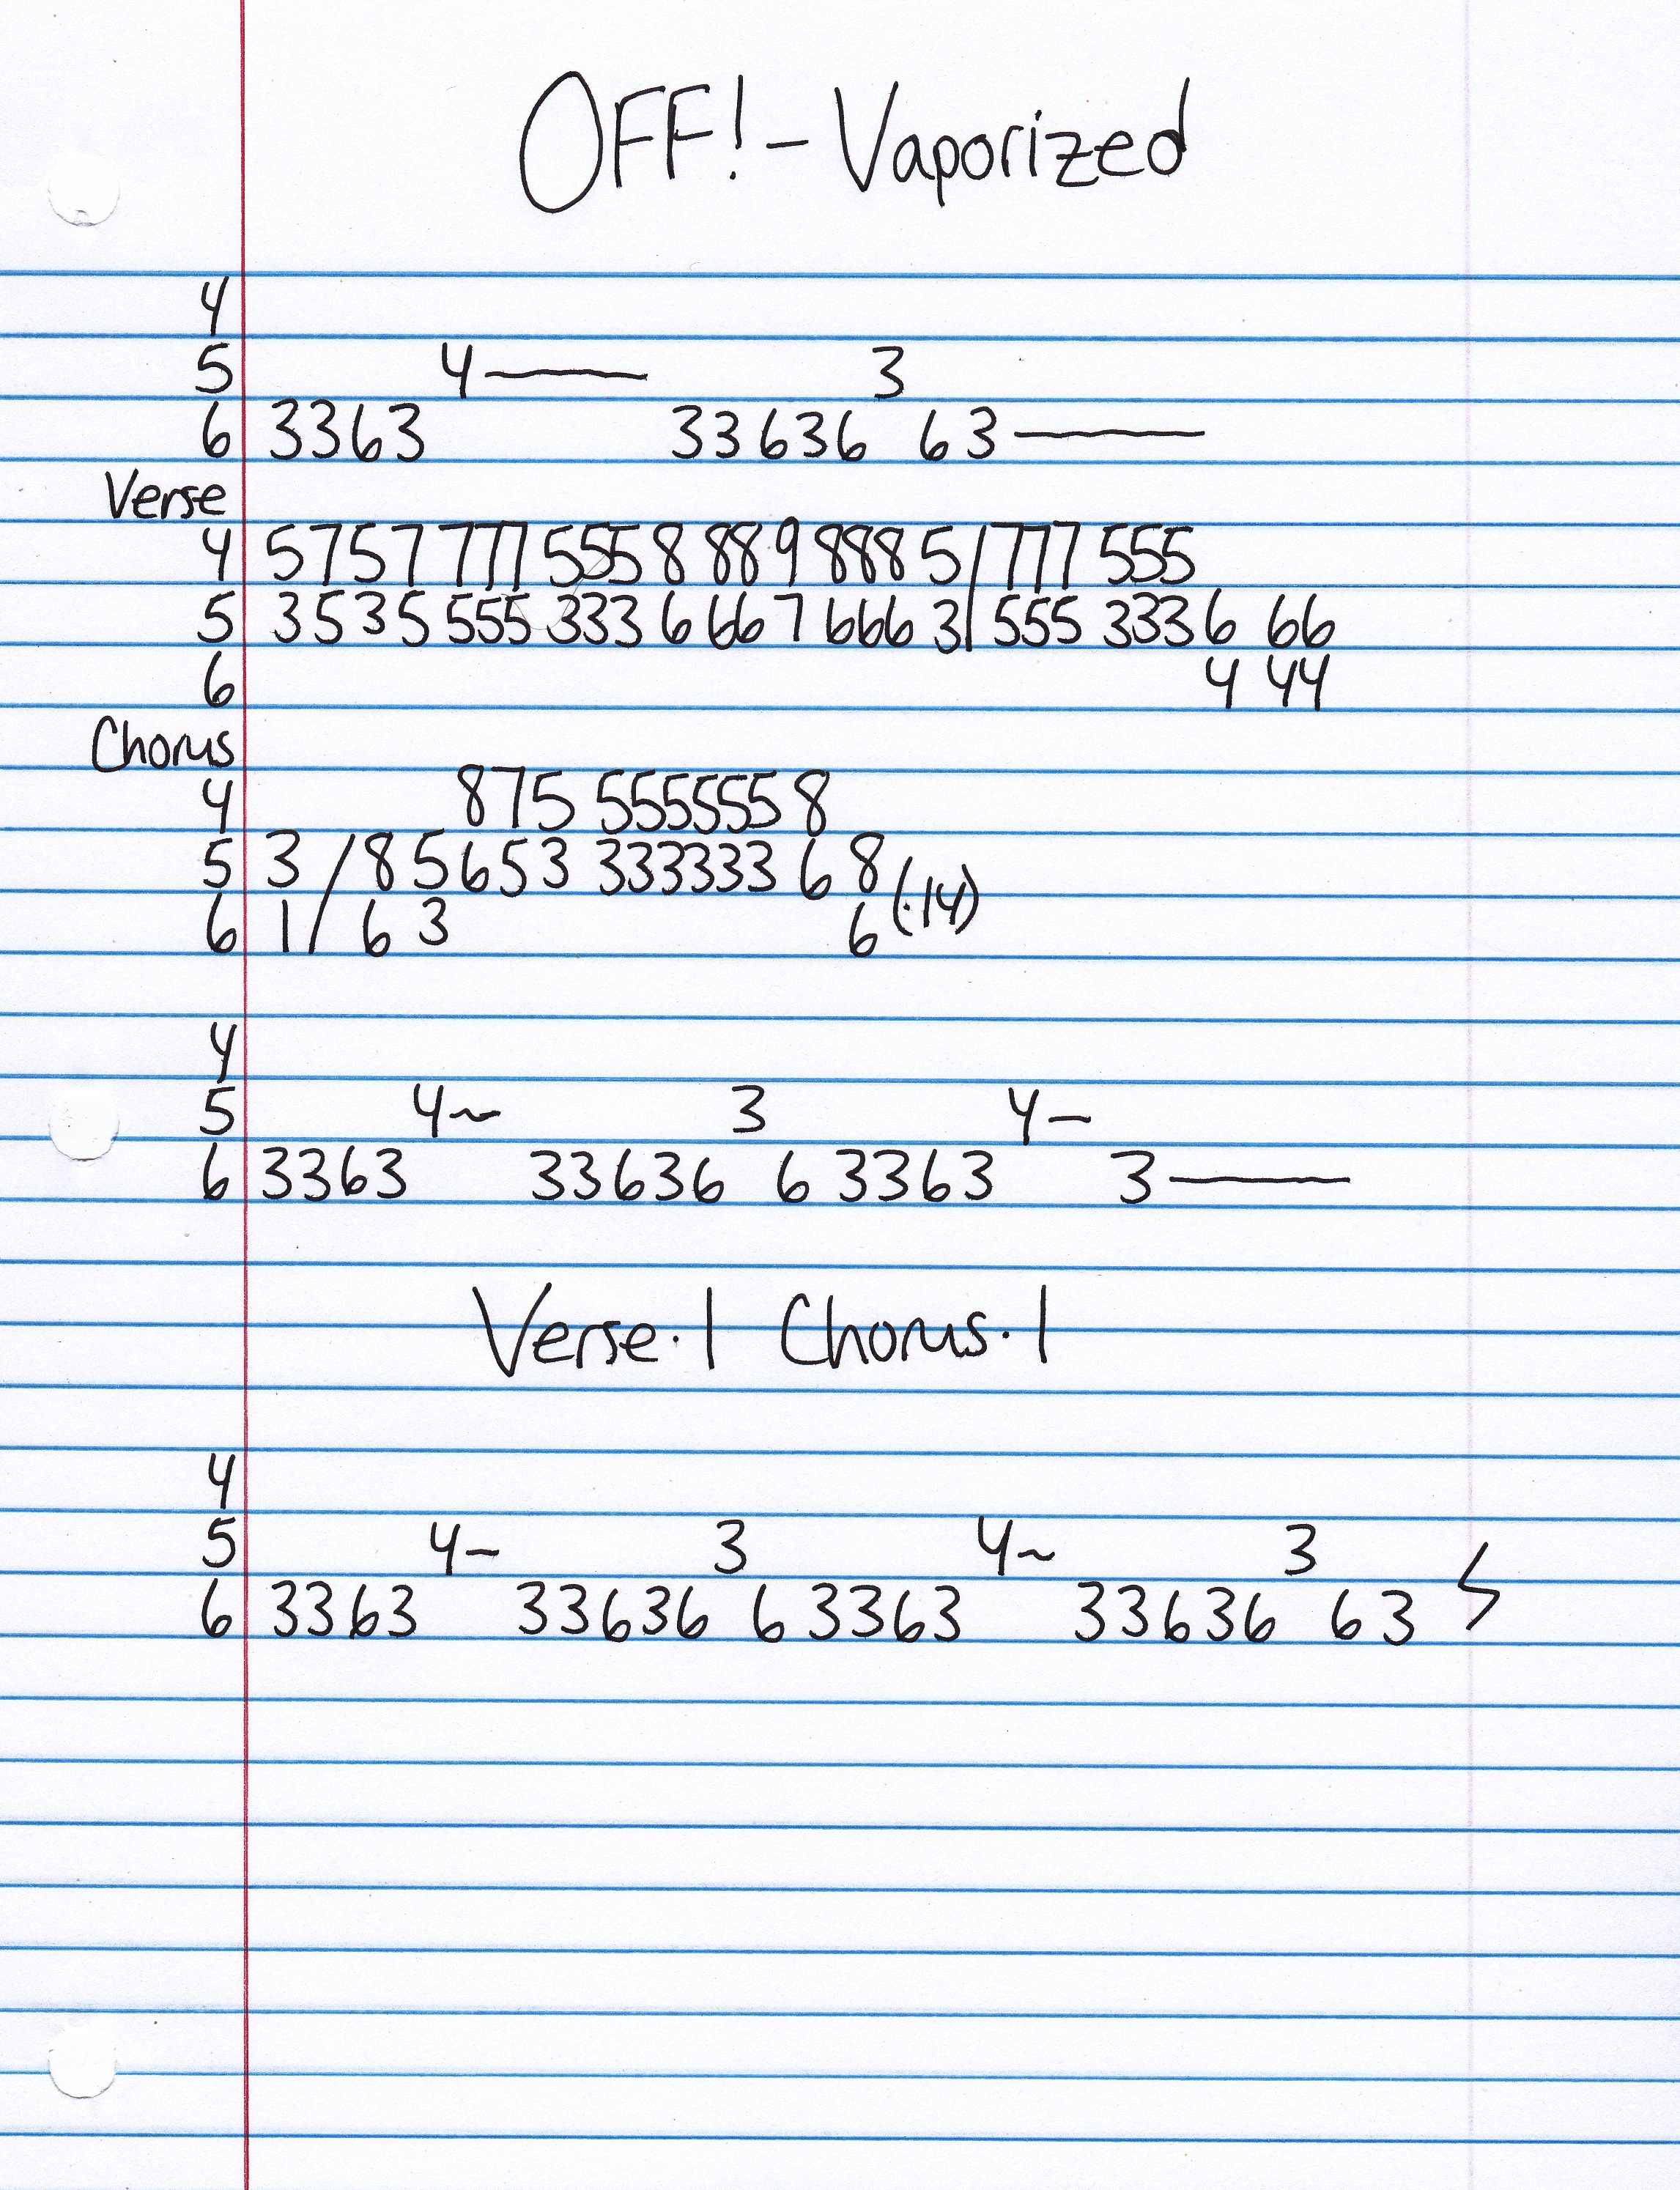 OFF! - Vaporized
4
5 4—— 3
6 3363 33636 63——
Verse
4 5757 777 5558 889 8885/777 555
5 3535 555 333 6 667 6663/555 3336 66
6 4 44
Chorus
4 875 5555558
5 3/85653 333333 6 8
6 1/63 6 (·14)
4
5 4~ 3 4-
6 3363 33636 6 3363 3——
Verse·1 Chorus·1
4
5 4- 3 4~ 3
6 3363 33636 6 3363 33636 63